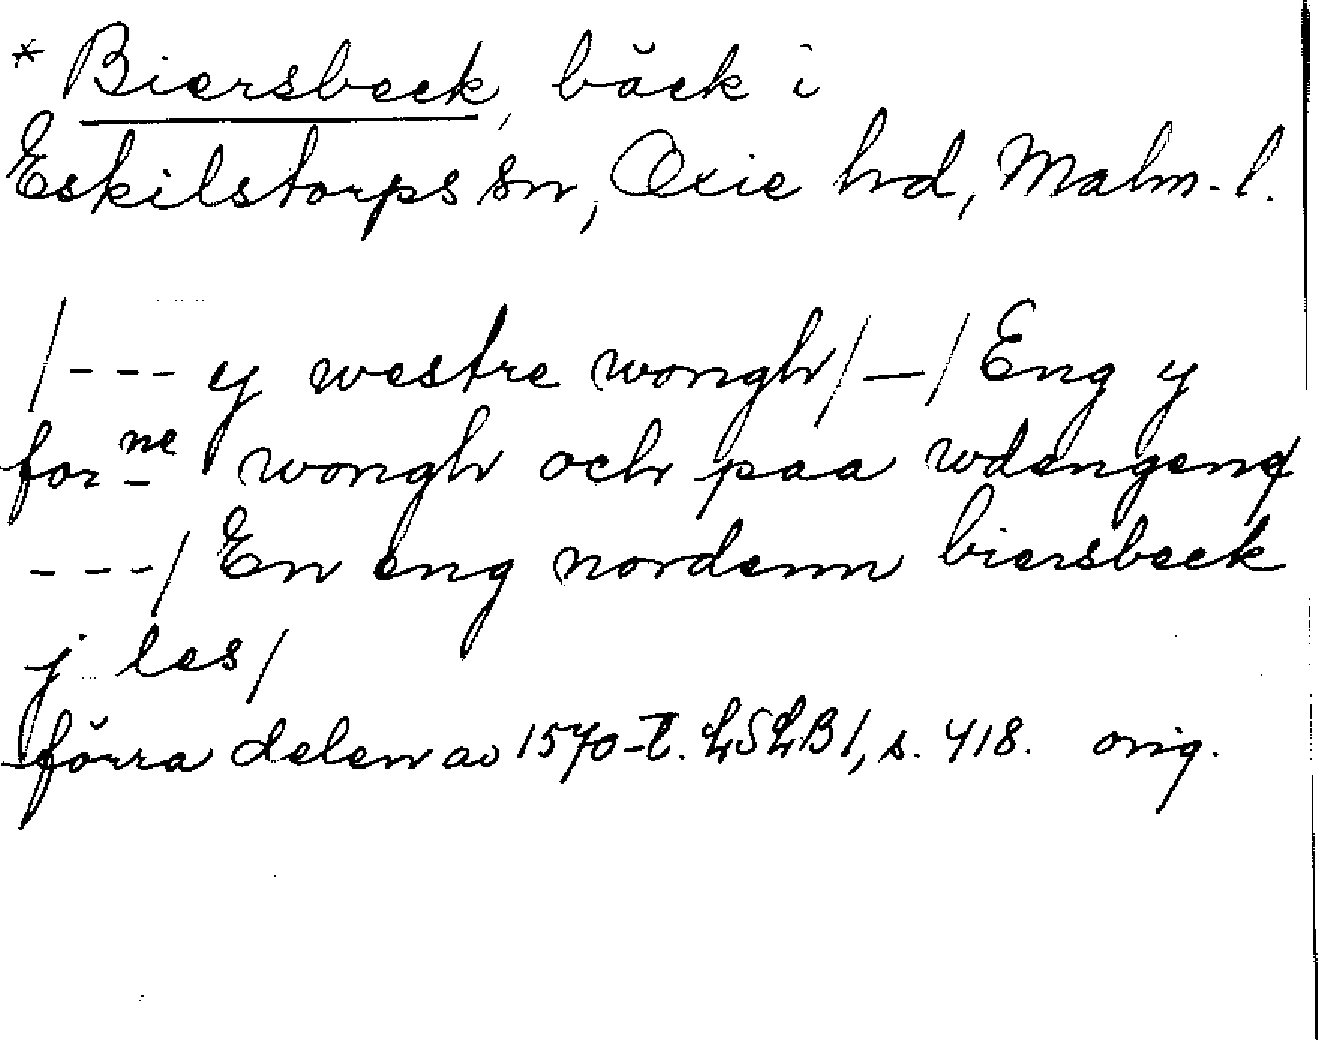 * Biersbeck, bäck i
Eskilstorps sn, Oxie hd, Malm-l.
/--- y westre wongh/—/ Eng y
for ne wongh och paa wdengend
---/ En eng nordenn biersbeck
j les/
förra delen av 1570-t. LSLB 1, s. 418. orig.